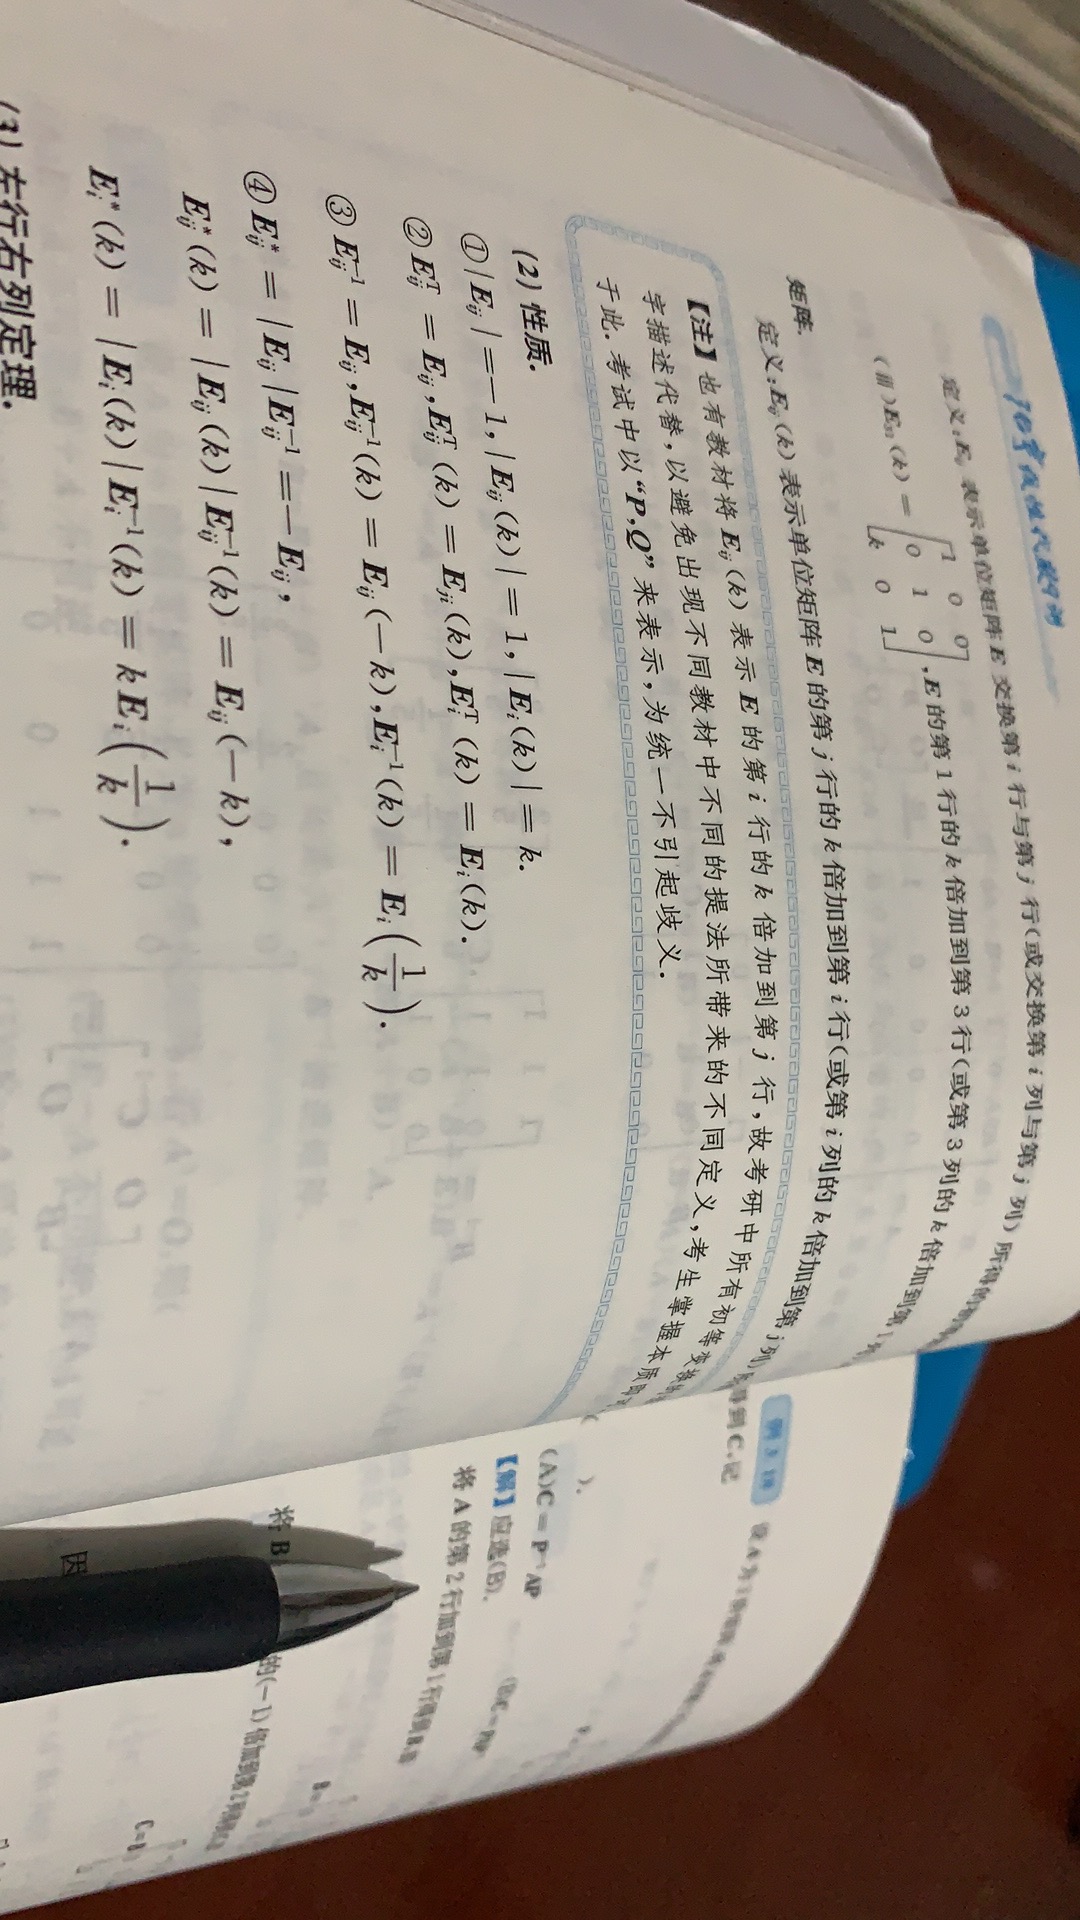 定义:Eij 表示单位矩阵 E 交换第 i 行与第 j 行(或交换第 i 列与第 j 列)所得的
(Ⅲ)E₃₁(k) = [1 0 0
0 1 0
k 0 1], E 的第 1 行的 k 倍加到第 3 行(或第 3 列的 k 倍加到第 1
矩阵.
定义:Eij(k) 表示单位矩阵 E 的第 j 行的 k 倍加到第 i 行(或第 i 列的 k 倍加到第 j 列)
【注】也有教材将 Eij(k) 表示 E 的第 i 行的 k 倍加到第 j 行,故考研中所有初等变换
字描述代替,以避免出现不同教材中不同的提法所带来的不同定义,考生掌握本质即
于此.考试中以“P,Q”来表示,为统一不引起歧义.
(2) 性质.
① |Eij| = −1, |Eij(k)| = 1, |Ei(k)| = k.
② Eijᵀ = Eij, Eijᵀ(k) = Eji(k), Eiᵀ(k) = Ei(k).
③ Eij⁻¹ = Eij, Eij⁻¹(k) = Eij(−k), Ei⁻¹(k) = Ei(1/k).
④ Eij* = |Eij|Eij⁻¹ = −Eij,
Eij*(k) = |Eij(k)|Eij⁻¹(k) = Eij(−k),
Ei*(k) = |Ei(k)|Ei⁻¹(k) = kEi(1/k).
(3) 左行右列定理.
得到 C,记
).
(A)C = P⁻¹AP
【解】应选(B).
将 A 的第 2 行加到第 1 行得
将 B
的(−1) 倍加到第 2
因